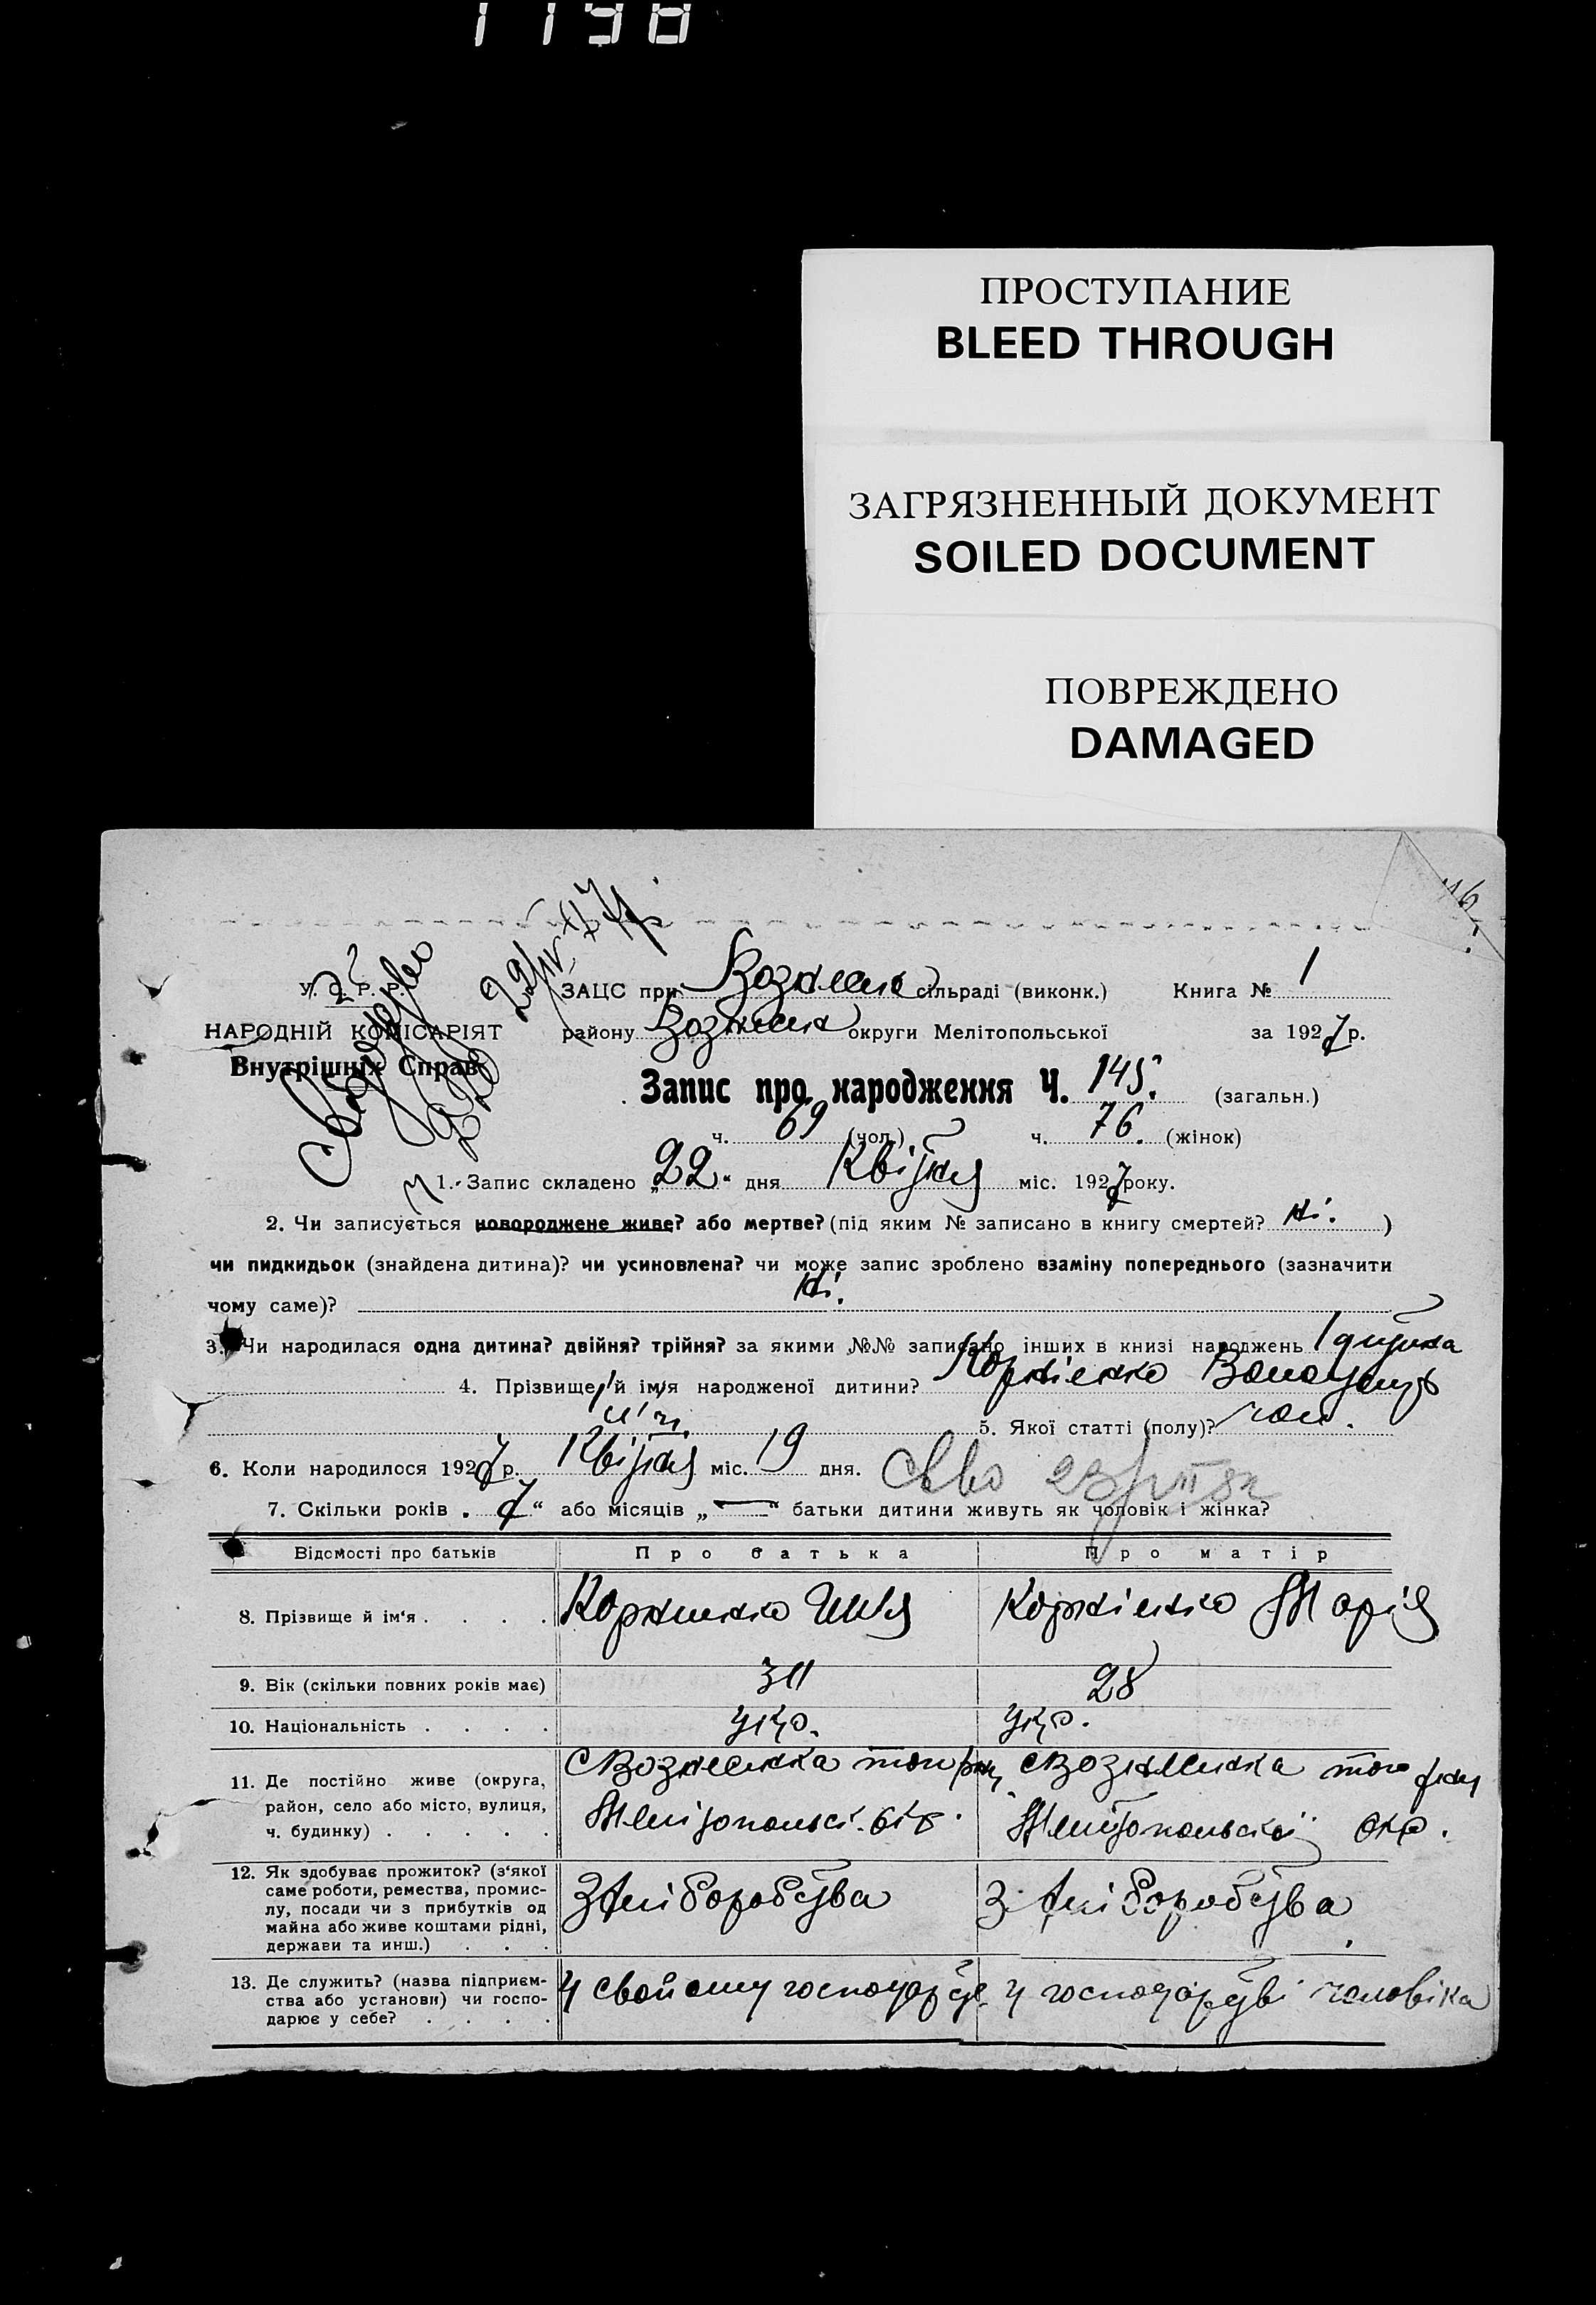 1198
ПРОСТУПАНИЕ
BLEED THROUGH
ЗАГРЯЗНЕННЫЙ ДОКУМЕНТ
SOILED DOCUMENT
ПОВРЕЖДЕНО
DAMAGED
У. С. Р. Р. ЗАЦС при сільраді (виконк.) Книга № 1
НАРОДНІЙ КОМІСАРІЯТ району округи Мелітопольської за 1927 р.
Внутрішніх Справ
Запис про народження Ч. 145. (загальн.)
ч. 69 (чол.) ч. 76. (жінок)
1. Запис складено „22“ дня Квітня міс. 1927 року.
2. Чи записується новороджене живе? або мертве? (під яким № записано в книгу смертей? Ні. )
чи пидкидьок (знайдена дитина)? чи усиновлена? чи може запис зроблено взаміну попереднього (зазначити
чому саме)? Ні.
3. Чи народилася одна дитина? двійня? трійня? за якими №№ записано інших в книзі народжень 1 дитина
4. Прізвище й ім'я народженої дитини? Корнієнко
5. Якої статті (полу)? чол.
6. Коли народилося 1927 р. Квітня міс. 19 дня.
7. Скільки років „7“ або місяців „—“ батьки дитини живуть як чоловік і жінка?
Відомості про батьків Про батька Про матір
8. Прізвище й ім'я . . . . Корниенко Илля Корнієнко Марія
9. Вік (скільки повних років має) 28
10. Національність . . . . укр. укр.
11. Де постійно живе (округа, с Вознесенка того с Вознесенка того
район, село або місто, вулиця, Мелітопольської окр.
ч. будинку) . . . . .
12. Як здобуває прожиток? (з'якої З хліборобства З хліборобства
саме роботи, ремества, промис-
лу, посади чи з прибутків од
майна або живе коштами рідні,
держави та инш.) . . .
13. Де служить? (назва підприєм- У свойому господарстві У господарстві чоловіка
ства або установи) чи госпо-
дарює у себе? . . . .